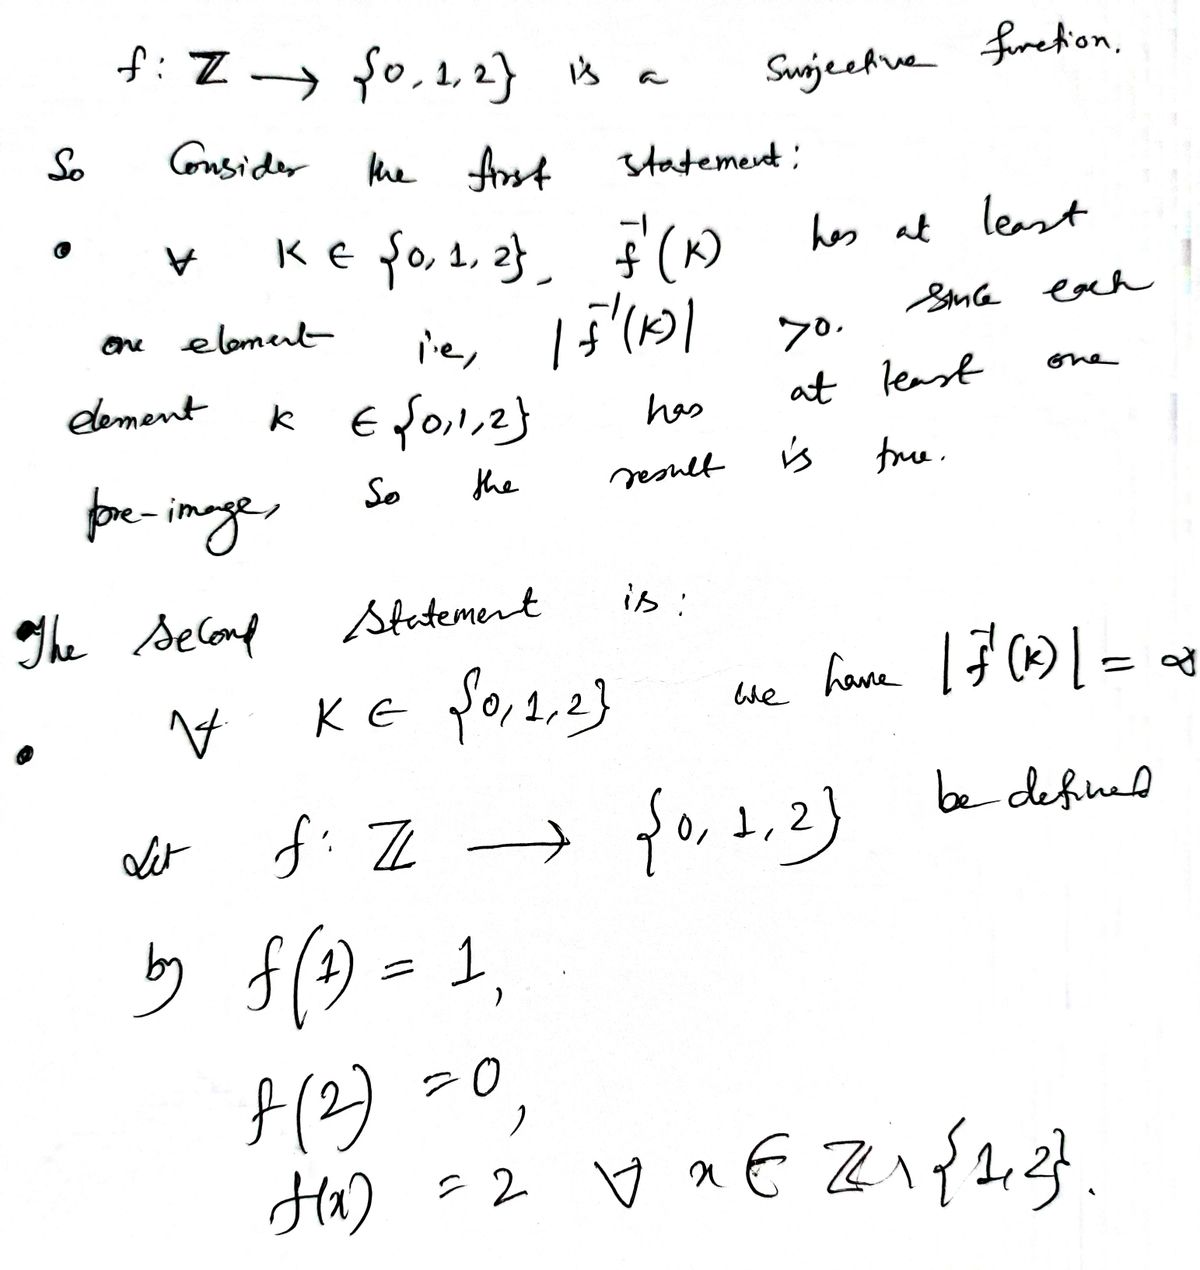 f: ℤ → {0, 1, 2} is a Surjective function.
So Consider the first statement:
• ∀ K ∈ {0, 1, 2}, f⁻¹(K) has at least
one element i.e, |f⁻¹(K)| >0. Since each
element k ∈ {0,1,2} has at least one
pre-image, So the result is true.
The Second Statement is:
• ∀ K ∈ {0,1,2} we have |f⁻¹(K)| = ∞
Let f: ℤ → {0, 1, 2} be defined
by f(1) = 1,
f(2) = 0,
f(x) = 2 ∀ x ∈ ℤ \ {1,2}.